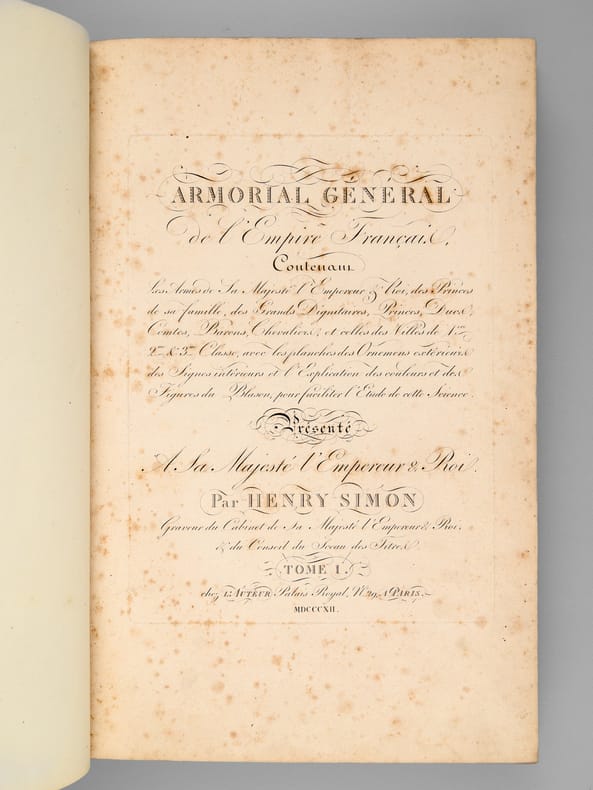 ARMORIAL GÉNÉRAL
de l'Empire Français,
Contenant
Les Armes de Sa Majesté l'Empereur & Roi, des Princes
de sa famille, des Grands Dignitaires, Princes, Ducs,
Comtes, Barons, Chevaliers, et celles des Villes de 1ere
2me & 3me Classe, avec les planches des Ornemens extérieurs
des Signes intérieurs et l'Explication des couleurs et des
Figures du Blason, pour faciliter l'Etude de cette Science.
Présenté
A Sa Majesté l'Empereur & Roi.
Par HENRY SIMON
Graveur du Cabinet de Sa Majesté l'Empereur & Roi,
& du Conseil du Sceau des Titres.
TOME I.
chez L'AUTEUR Palais Royal, N° 29, A PARIS.
MDCCCXII.